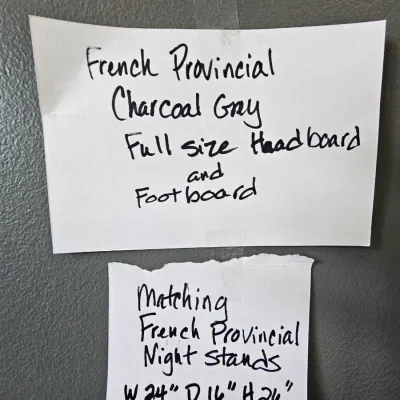 French Provincial
Charcoal Gray
Full size Headboard
and
Footboard
Matching
French Provincial
Night Stands
W 24" D 16" H 26"